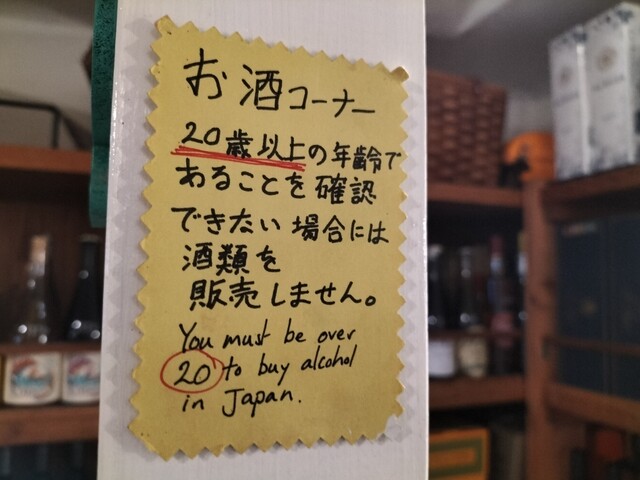 お酒コーナー
20歳以上の年齢で
あることを確認
できたい場合には
酒類を
販売しません。
You must be over
20 to buy alcohol
in Japan.